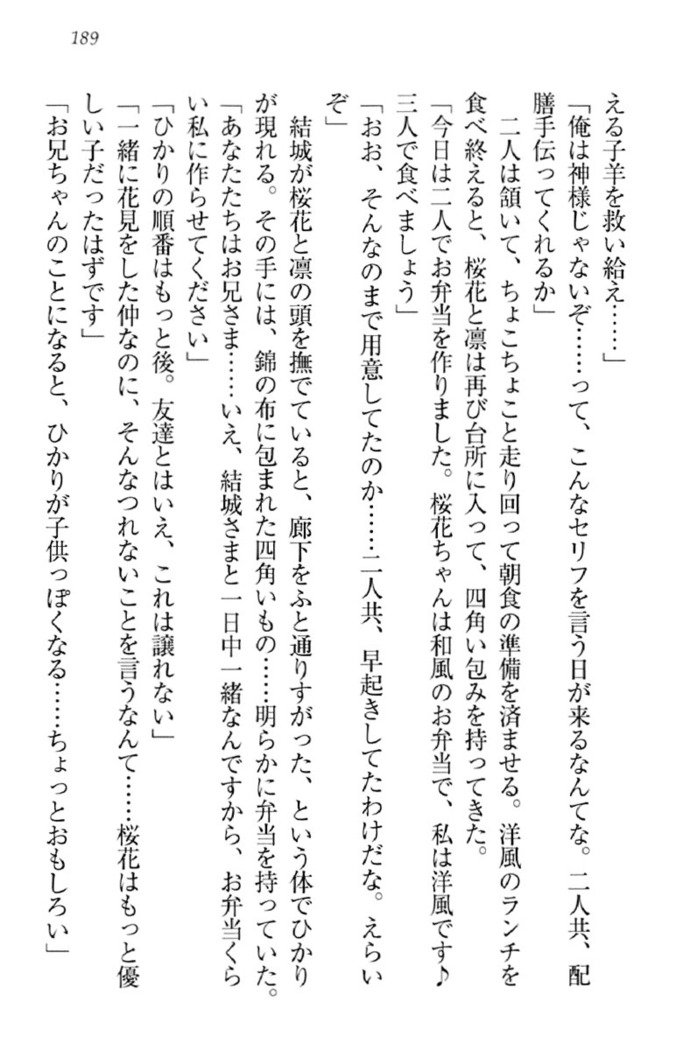 189
える子羊を救い給え……」
「俺は神様じゃないぞ……って、こんなセリフを言う日が来るなんてな。二人共、配
膳手伝ってくれるか」
二人は頷いて、ちょこちょこと走り回って朝食の準備を済ませる。洋風のランチを
食べ終えると、桜花と凛は再び台所に入って、四角い包みを持ってきた。
「今日は二人でお弁当を作りました。桜花ちゃんは和風のお弁当で、私は洋風です♪
三人で食べましょう」
「おお、そんなのまで用意してたのか……二人共、早起きしてたわけだな。えらい
ぞ」
結城が桜花と凛の頭を撫でていると、廊下をふと通りすがった、という体でひかり
が現れる。その手には、錦の布に包まれた四角いもの……明らかに弁当を持っていた。
「あなたたちはお兄さま……いえ、結城さまと一日中一緒なんですから、お弁当くら
い私に作らせてください」
「ひかりの順番はもっと後。友達とはいえ、これは譲れない」
「一緒に花見をした仲なのに、そんなつれないことを言うなんて……桜花はもっと優
しい子だったはずです」
「お兄ちゃんのことになると、ひかりが子供っぽくなる……ちょっとおもしろい」